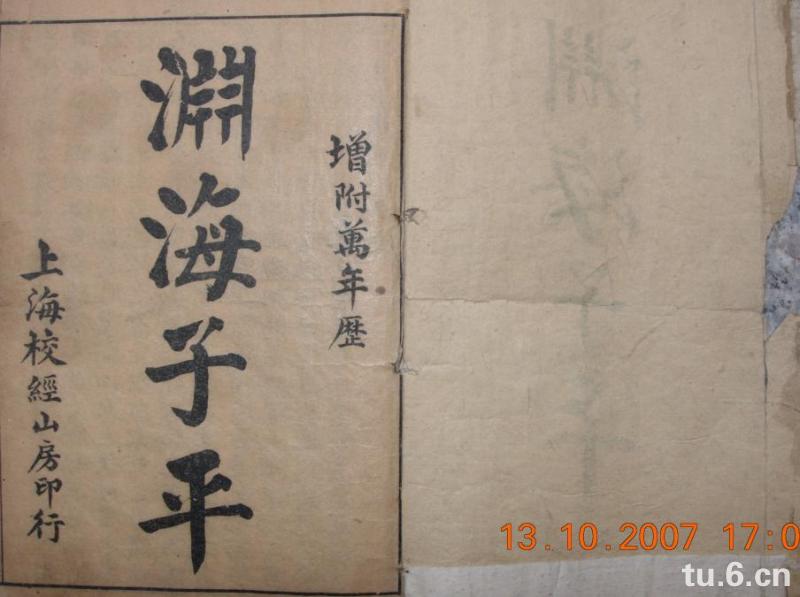 增附萬年歷
淵海子平
上海校經山房印行
13.10.2007 17:0
tu.6.cn